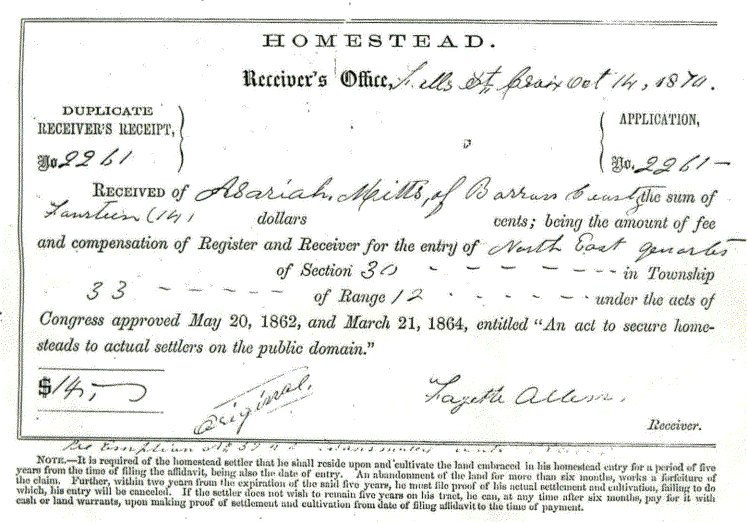 HOMESTEAD.
Receiver's Office, Falls St. Croix Oct 14, 1870.
DUPLICATE
RECEIVER'S RECEIPT,
No. 2261
APPLICATION,
No. 2261
RECEIVED of Asariah Mitts, of Barron County the sum of
Fourteen (14) dollars cents; being the amount of fee
and compensation of Register and Receiver for the entry of North East quarter
of Section 30 - - - - - - - in Township
33 - - - - - - of Range 12 - - - - - - under the acts of
Congress approved May 20, 1862, and March 21, 1864, entitled "An act to secure home-
steads to actual settlers on the public domain."
$14,
Original.
Fayette Allen,
Receiver.
Pre Emption
NOTE.—It is required of the homestead settler that he shall reside upon and cultivate the land embraced in his homestead entry for a period of five
years from the time of filing the affidavit, being also the date of entry. An abandonment of the land for more than six months, works a forfeiture of
the claim. Further, within two years from the expiration of the said five years, he must file proof of his actual settlement and cultivation, failing to do
which, his entry will be canceled. If the settler does not wish to remain five years on his tract, he can, at any time after six months, pay for it with
cash or land warrants, upon making proof of settlement and cultivation from date of filing affidavit to the time of payment.